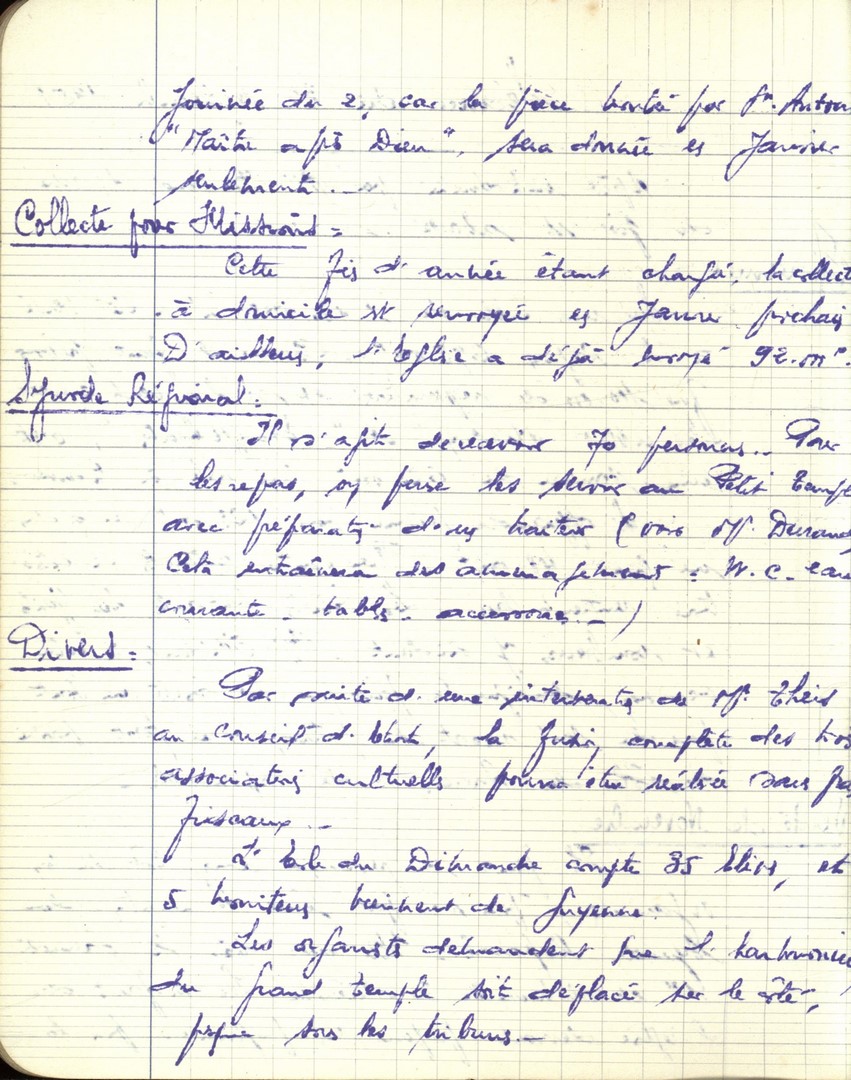 Journée du 2, car la pièce montée par Sr. Antoine
"Maître après Dieu", sera donnée en Janvier
seulement. -
Collecte pour Missions =
Cette fin d'année étant chargée, la collecte
à domicile est renvoyée en Janvier prochain
D'ailleurs, l'Eglise a déjà envoyé 92.
Synode Régional =
Il s'agit de recevoir 70 personnes.. Pour
les repas, on pense les servir au Petit Temple
avec préparation d'un traiteur (voir Mr. Durand
Cela entraînera des aménagements = W.C. eau
courante - tables - accessoires. - )
Divers =
Par suite d'une intervention de Mr. Theis
au Conseil d'Etat, la fusion complète des trois
associations cultuelles pourra être réalisée sans frais
fiscaux. -
L'Ecole du Dimanche compte 35 Elèves, et
5 moniteurs viennent de Guyenne.
Les organistes demandent que l'harmonium
du grand temple soit déplacé sur le côté,
presque sous les tribunes. -